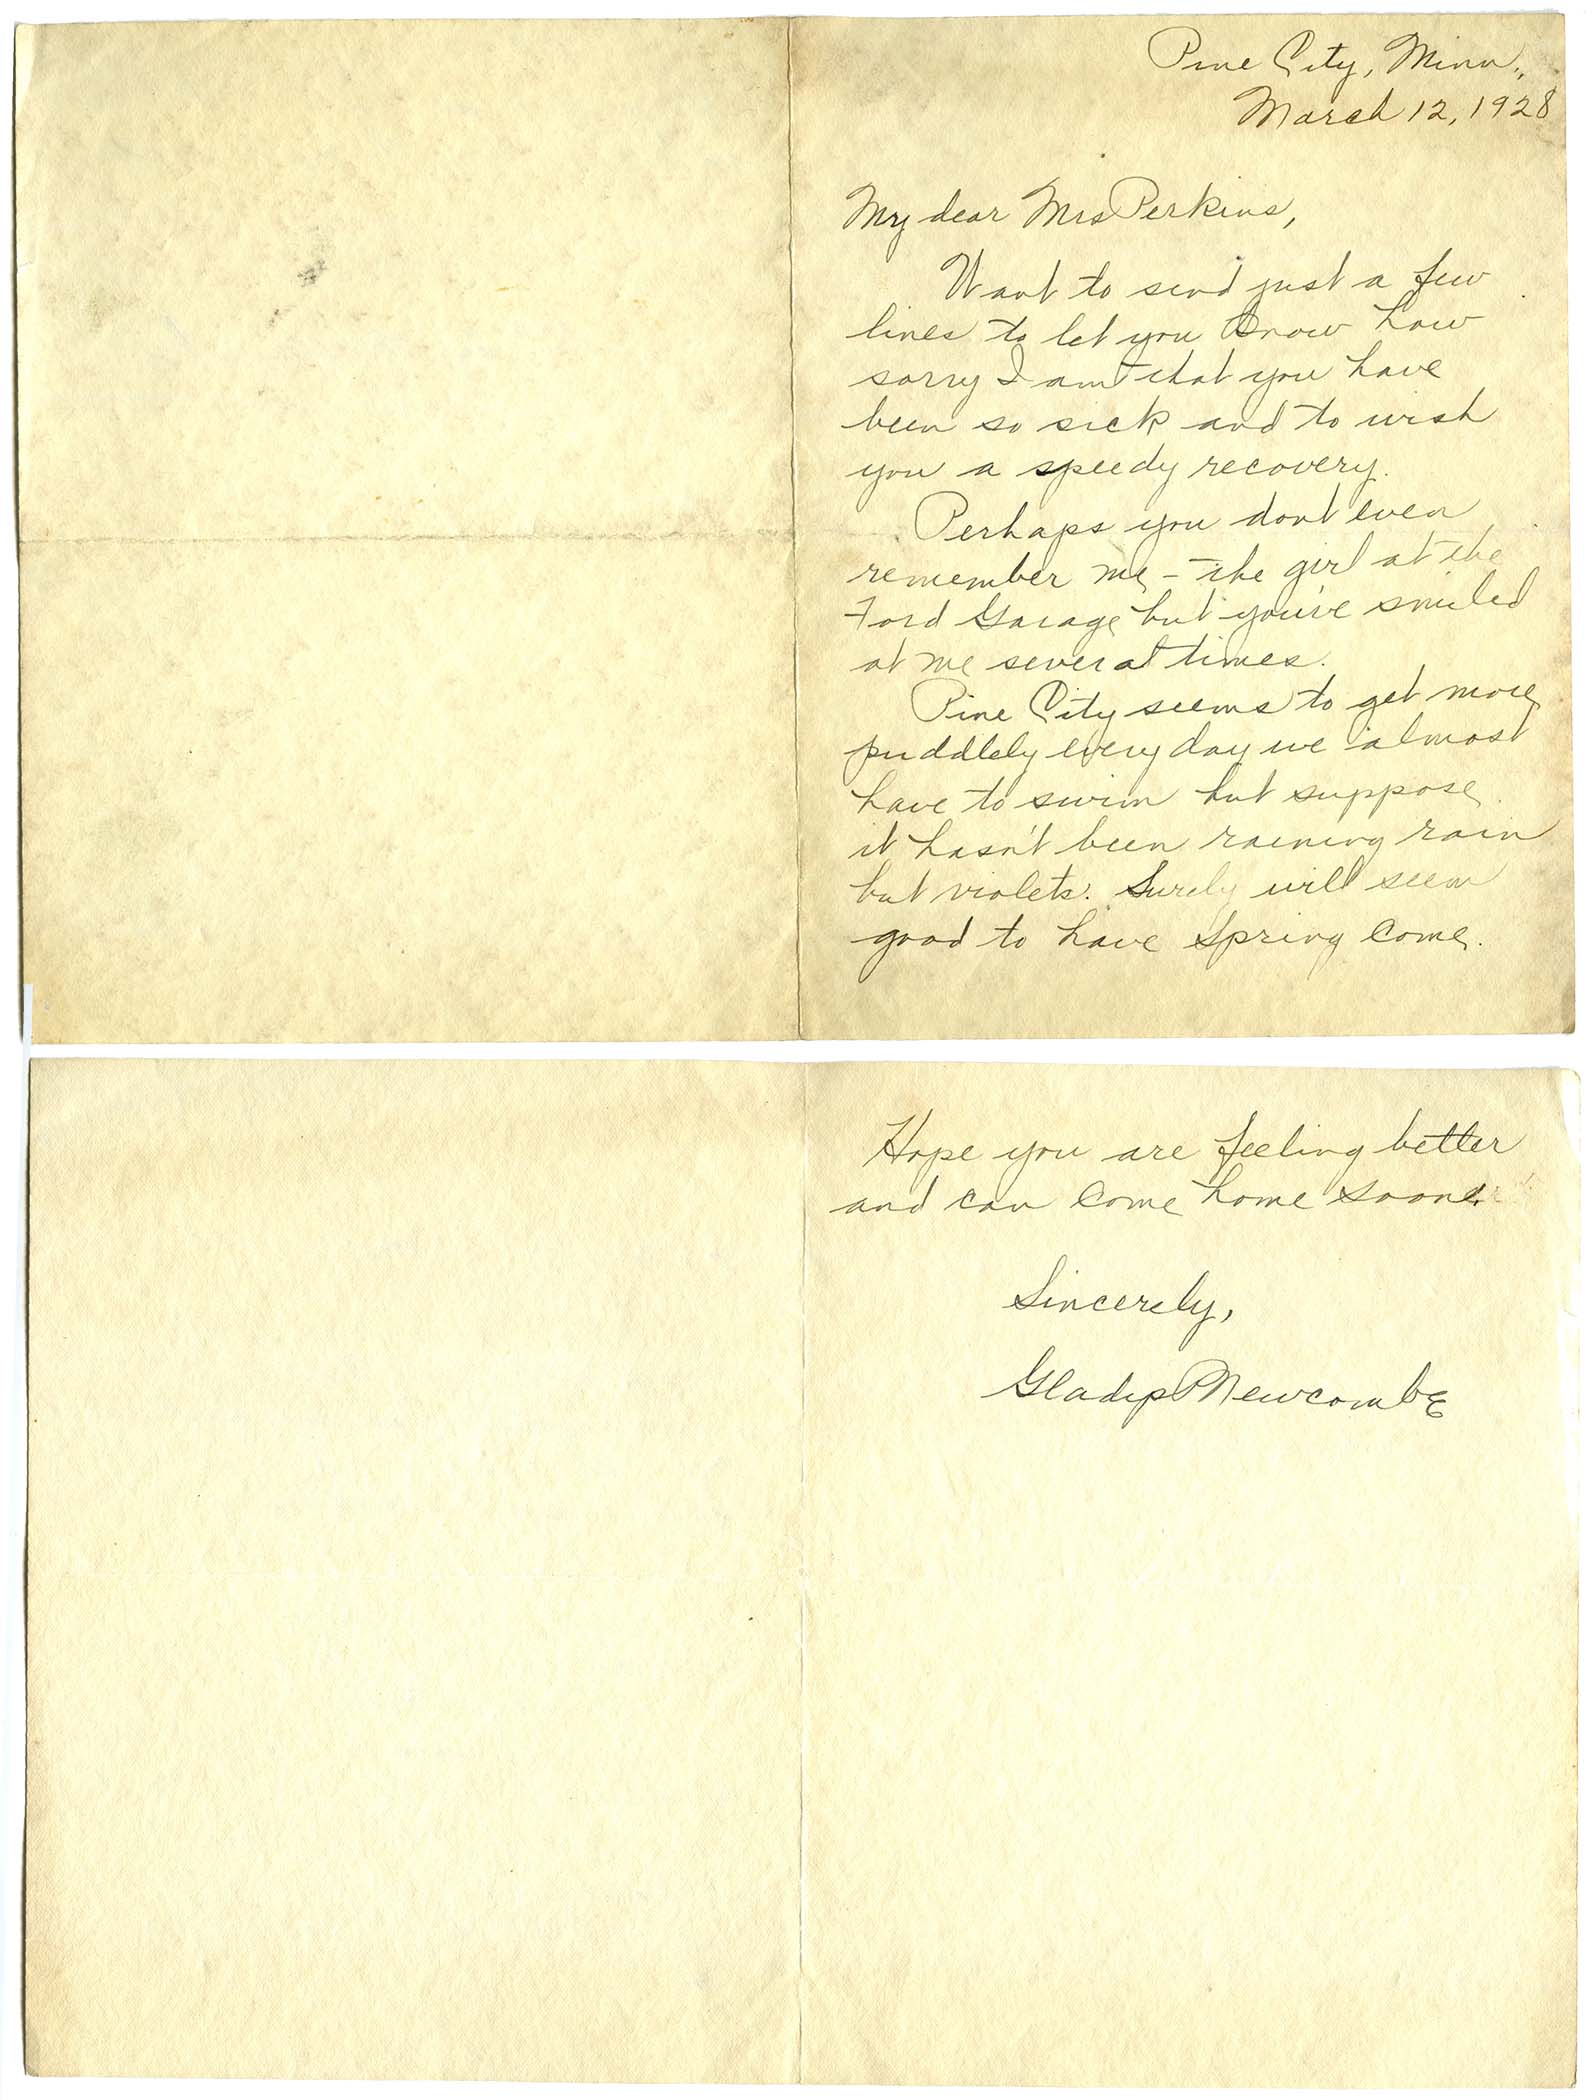 Pine City, Minn.,
March 12, 1928
My dear Mrs Perkins,
Want to send just a few
lines to let you know how
sorry I am that you have
been so sick and to wish
you a speedy recovery.
Perhaps you dont even
remember me - the girl at the
Ford Garage but you've smiled
at me several times.
Pine City seems to get more
puddlely every day we almost
have to swim but suppose
it hasn't been raining rain
but violets. Surely will seem
good to have Spring come.
Hope you are feeling better
and can come home soon.
Sincerely,
Gladys Newcombe